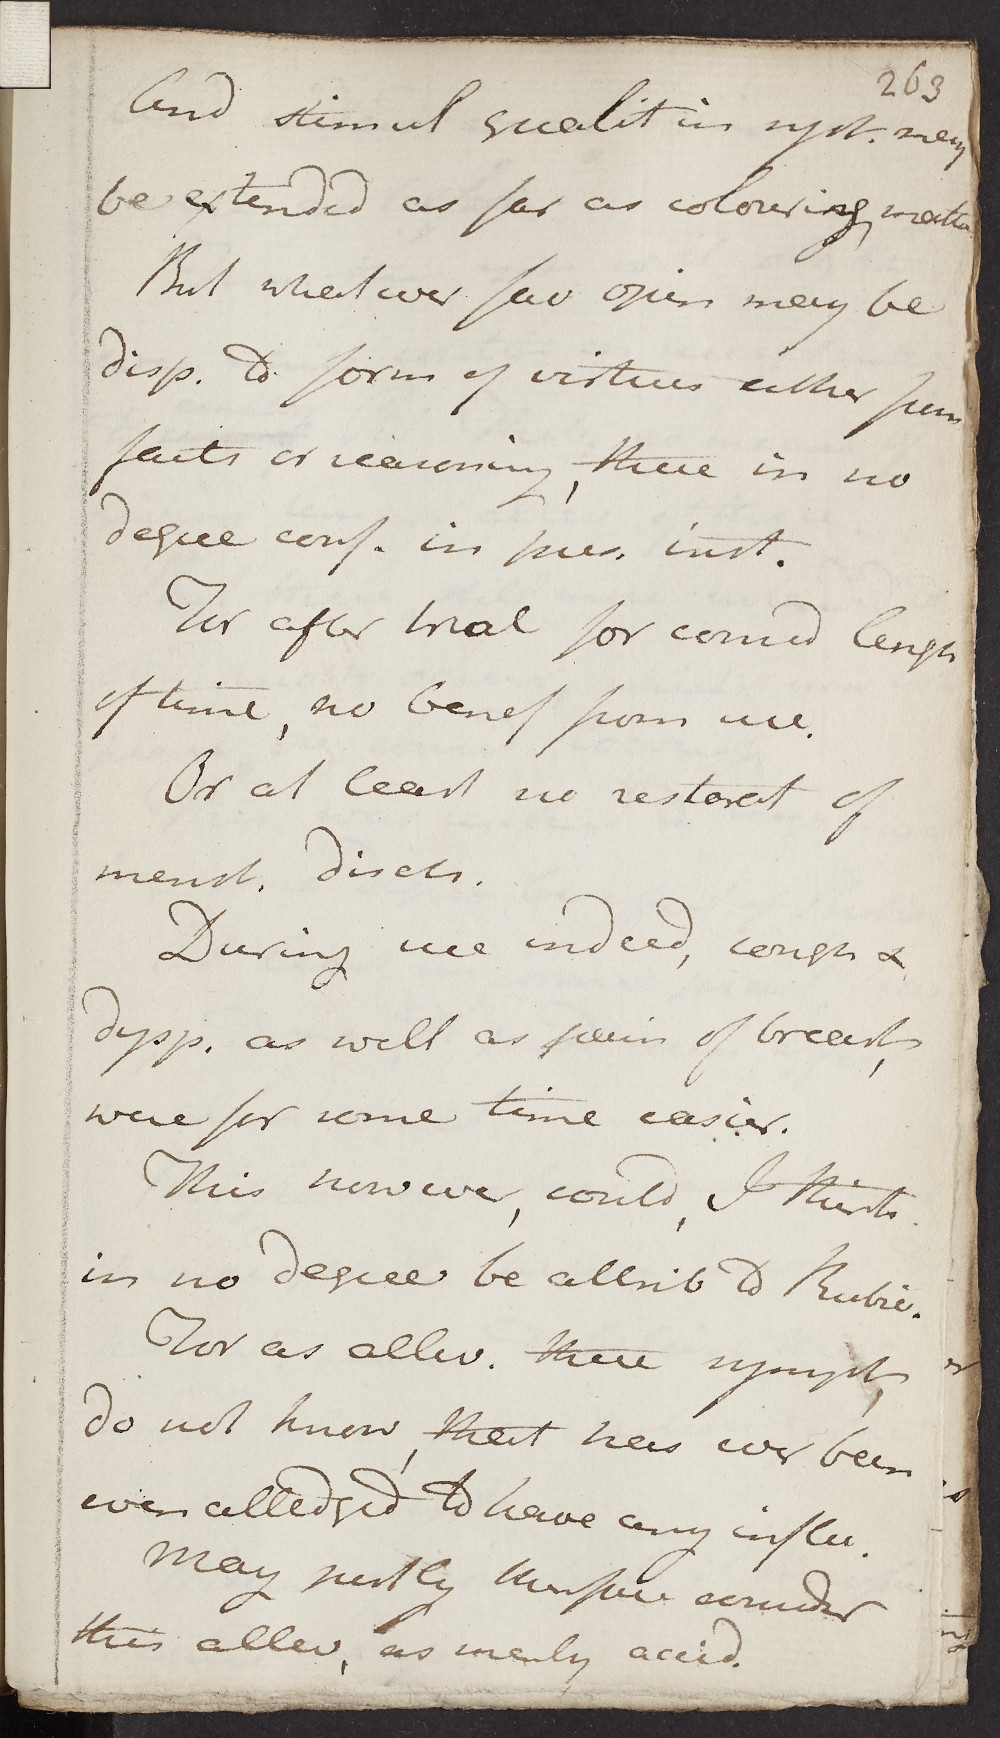 263
And stimul qualit in syst. may
be extended as far as colouring matter
But whatever fav opin may be
disp. to form of virtues either from
facts or reasoning, these in no
degree conf. in pres. inst.
For after trial for consid length
of time, no benef from use.
Or at least no restorat of
menst. disch.
During use indeed, cough &
dysp. as well as pain of breast,
were for some time easier.
This however, could, I think
in no degree be attrib to Rubia.
For as allev. these sympt,
do not know, that has ever been
even alledged to have any influ.
May justly therefore consider
this allev, as merely accid.